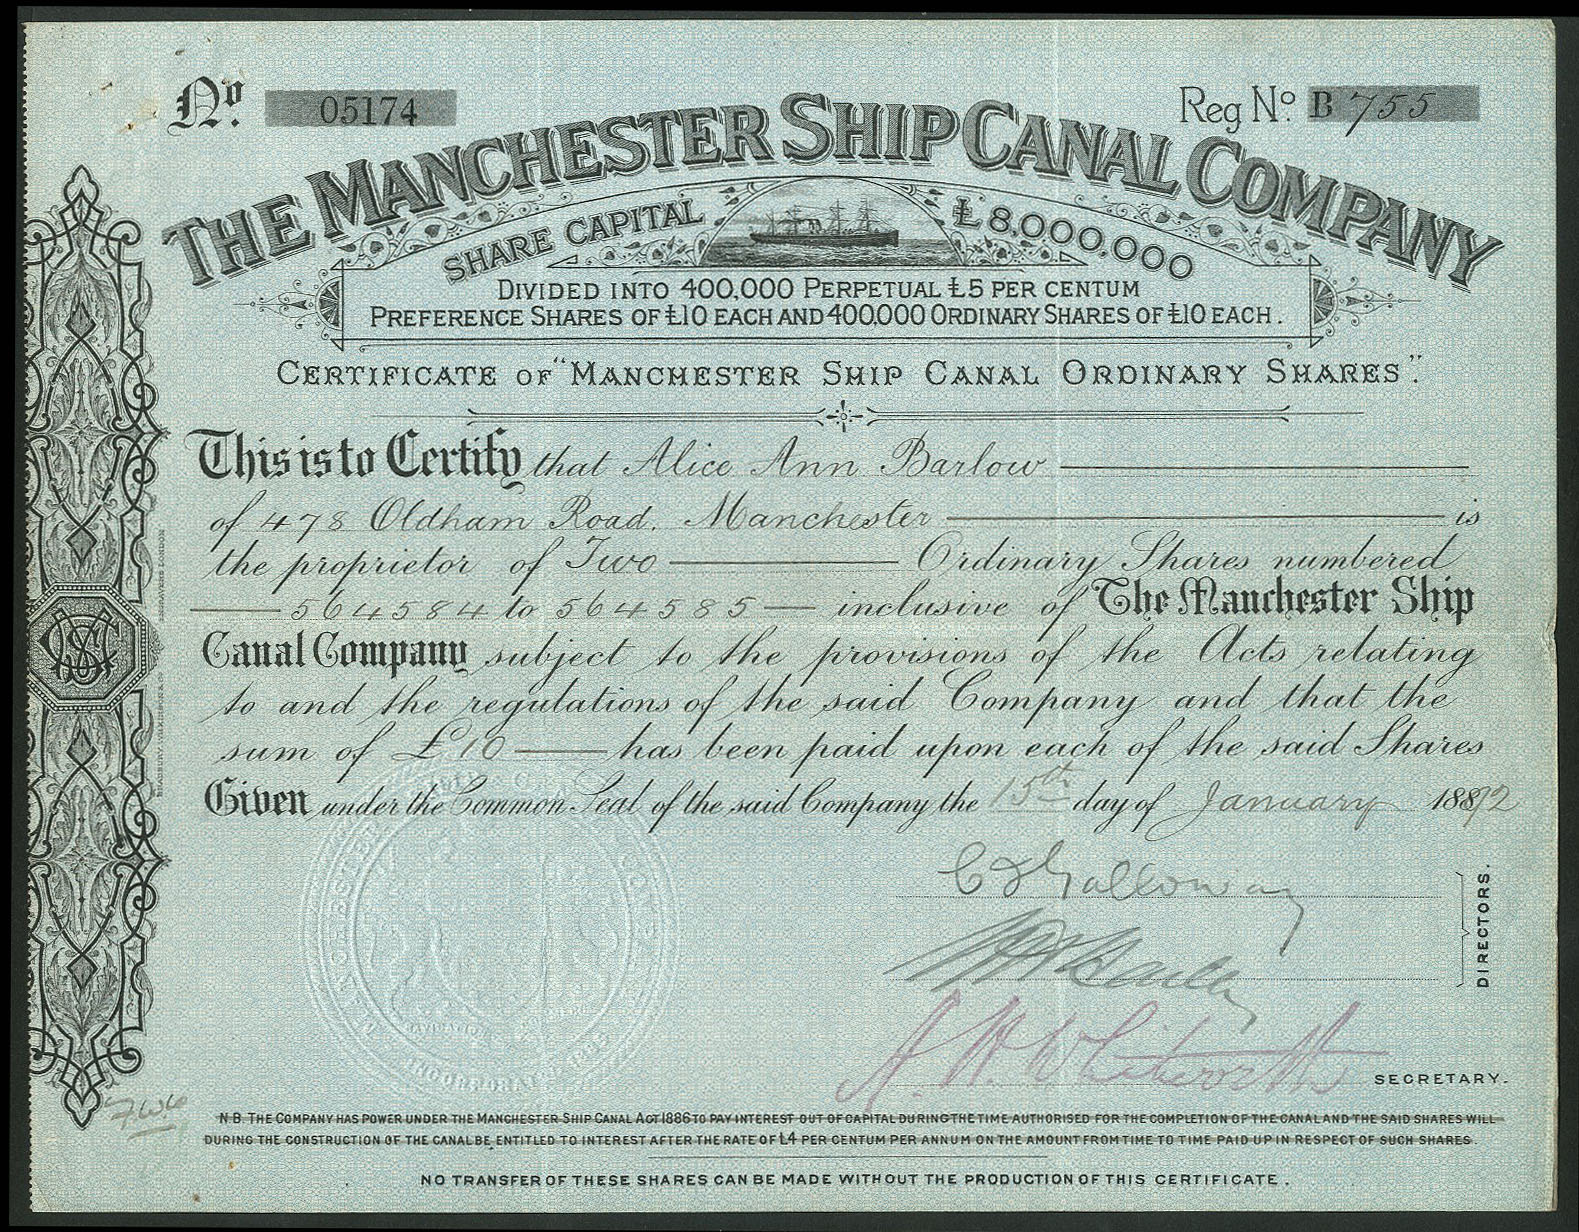 No. 05174
Reg No. B 755
THE MANCHESTER SHIP CANAL COMPANY
SHARE CAPITAL £8,000,000
DIVIDED INTO 400,000 PERPETUAL £5 PER CENTUM
PREFERENCE SHARES OF £10 EACH AND 400,000 ORDINARY SHARES OF £10 EACH.
CERTIFICATE OF "MANCHESTER SHIP CANAL ORDINARY SHARES".
This is to Certify that Alice Ann Barlow
of 478 Oldham Road. Manchester is
the proprietor of Two Ordinary Shares numbered
564584 to 564585 inclusive of The Manchester Ship
Canal Company subject to the provisions of the Acts relating
to and the regulations of the said Company and that the
sum of £10 has been paid upon each of the said Shares
Given under the Common Seal of the said Company the 15th day of January 1892
DIRECTORS.
A. H. Whitworth
SECRETARY.
N.B. THE COMPANY HAS POWER UNDER THE MANCHESTER SHIP CANAL ACT 1886 TO PAY INTEREST OUT OF CAPITAL DURING THE TIME AUTHORISED FOR THE COMPLETION OF THE CANAL AND THE SAID SHARES WILL
DURING THE CONSTRUCTION OF THE CANAL BE ENTITLED TO INTEREST AFTER THE RATE OF £4 PER CENTUM PER ANNUM ON THE AMOUNT FROM TIME TO TIME PAID UP IN RESPECT OF SUCH SHARES.
NO TRANSFER OF THESE SHARES CAN BE MADE WITHOUT THE PRODUCTION OF THIS CERTIFICATE.
BRADBURY, WILKINSON & CO ENGRAVERS LONDON